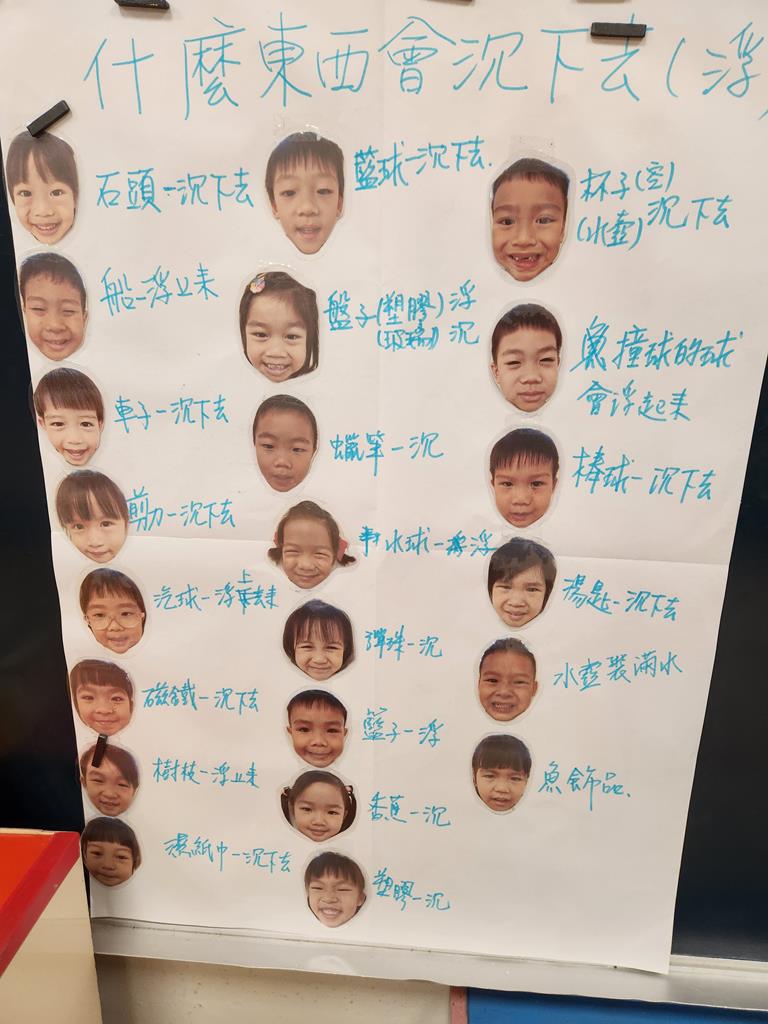 什麼東西會沉下去(浮)
石頭-沉下去
船-浮上來
車子-沉下去
剪刀-沉下去
汽球-浮上來
磁鐵-沉下去
樹枝-浮上來
濕紙巾-沉下去
籃球-沉下去.
盤子(塑膠)浮
(玻璃)沉
蠟筆-沉
水球-浮
彈珠-沉
籃子-浮
香蕉-沉
塑膠-沉
杯子(空)
(水壺)沉下去
魚撞球的球
會浮起來
棒球-沉下去
湯匙-沉下去
水壺裝滿水
魚飾品.